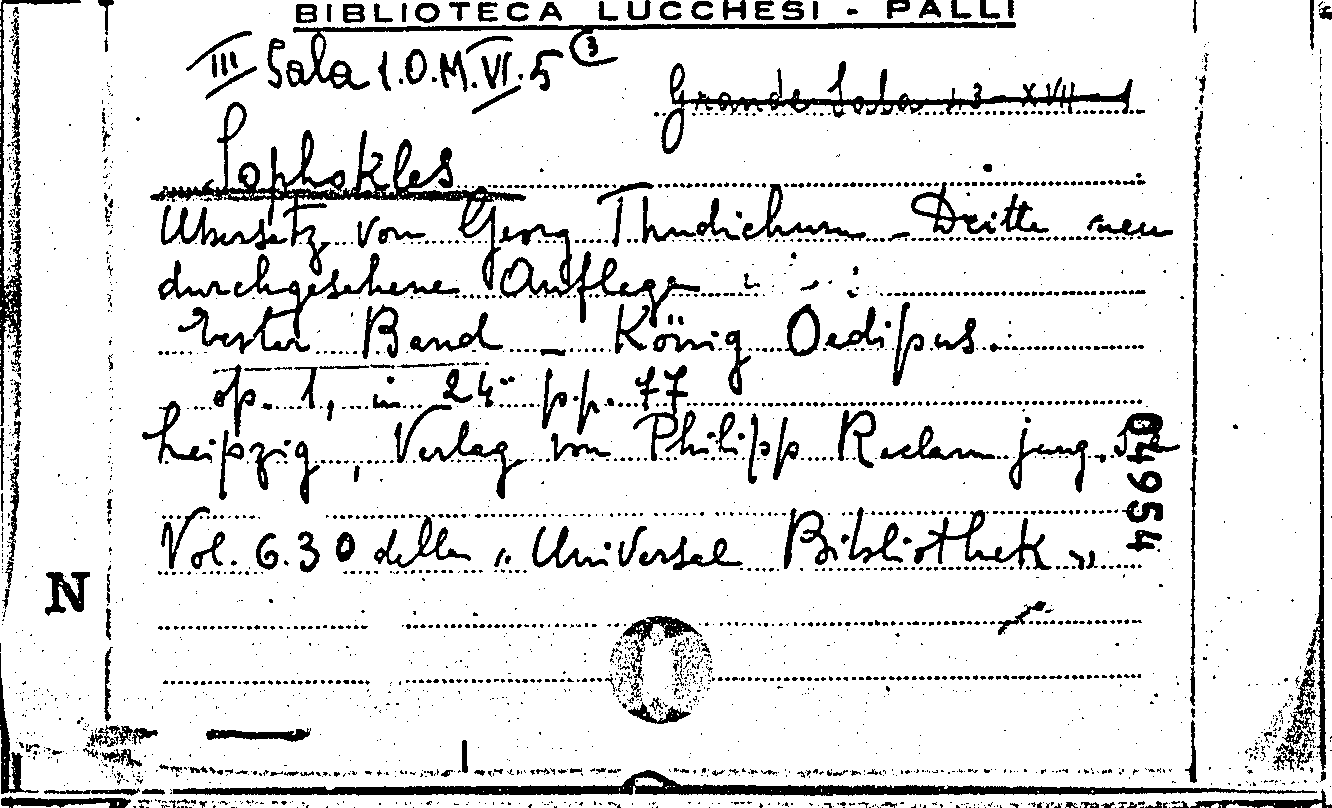 BIBLIOTECA LUCCHESI - PALLI
III Sala 1.O.M.VI.5 (3)
Grande Sala 13-XVII-1
Sophokles
Übersetz von Georg Thudichum - Dritte neu
durchgesehene Auflage
Erster Band - König Oedipus.
op. 1, in 24° pp. 77
Leipzig, Verlag von Philipp Reclam jung.
04954
Vol. 630 della „Universal Bibliothek"
N